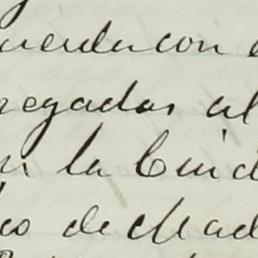 cuerda con e
regadas al
en la Ciud
co de Mad